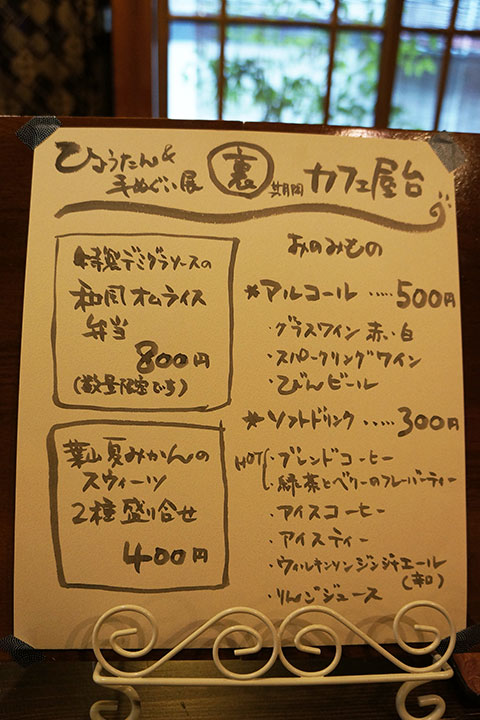 ひょうたん&
手ぬぐい展
裏
カフェ屋台
特製デミグラソースの
和風オムライス
弁当
800円
(数量限定です)
葉山夏みかんの
スウィーツ
2種盛り合せ
400円
おのみもの
*アルコール ・・・・・ 500円
・グラスワイン 赤・白
・スパークリングワイン
・びんビール
*ソフトドリンク ・・・・・ 300円
HOT
・ブレンドコーヒー
・緑茶とベリーのフレーバーティー
・アイスコーヒー
・アイスティー
・ウィルキンソンジンジャエール
(辛口)
・りんごジュース